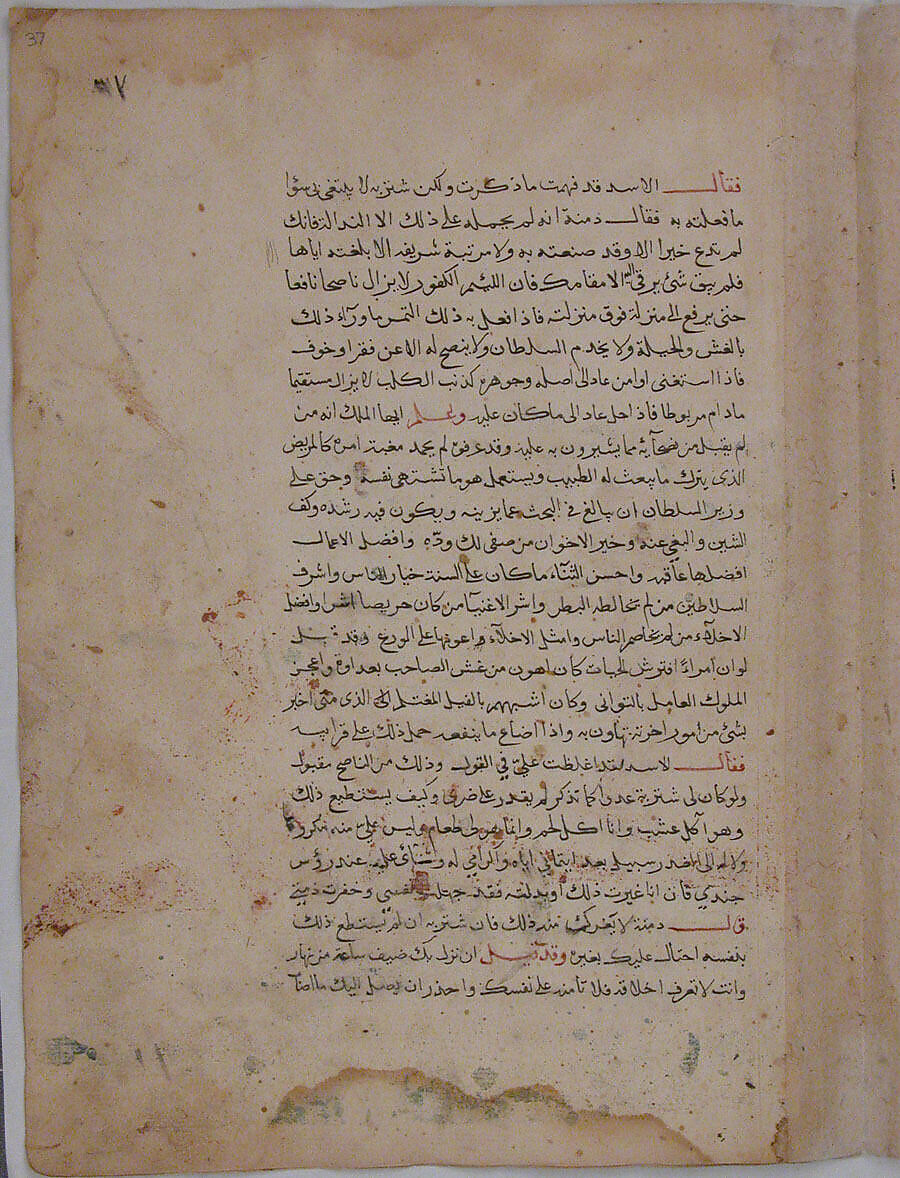 37
٣٧
فقال الاسد قد فهمت ما ذكرت ولكن شتربه لا يبتغى بى سؤا
ما فعلته به فقال دمنة انه لم يحمله على ذلك الا انك
لم تدع خيرا الا وقد صنعته به ولا مرتبة شريفه الا بلغته اياها
فلم يبق شئ يرقى اليه الا مقامك فان اللئيم الكفور لا يزال ناصحا نافعا
حتى يرفع الى منزلة فوق منزلته فاذا فعل به ذلك التمس ما ورآء ذلك
بالغش والحيلة ولا يخدم السلطان ولا ينصح له الا عن فقر او خوف
فاذا استغنى او امن عاد الى اصله وجوهره كذنب الكلب لا يزال مستقيما
ما دام مربوطا فاذا حل عاد الى ما كان عليه وعلم ايها الملك انه من
لم يقبل من نصحآيه مما يشيرون به عليه لم يحمد مغبة امره كالمريض
الذى يترك ما يبعث له الطبيب ويستعمل هو ما تشتهى نفسه وحق على
وزير السلطان ان يبالغ فى البحث عما يزينه ويكون فيه رشده وكف
الشين والبغى عنه وخير الاخوان من صفى لك ودّه وافضل الاعمال
افضلها عاقبه واحسن الثنآء ما كان على السنة خيار الناس واشرف
السلاطين من لم يخالطه البطر واشر الاغنيآ من كان حريصا اشرا وافضل
الاخلآء من لم يخاصم الناس وامثل الاخلآء اعونها على الورع وقد قيل
لو ان امراً افترش الحيات كان اهون من غش الصاحب بعداوة واعجز
الملوك العامل بالتوانى وكان اشبههم بالفيل المغتلم الذى متى اخبر
بشئ من امور اخرته تهاون به واذا اضاع ما ينفعه حمل ذلك على قرابيه
فقال لاسد لقد اغلظت علىّ فى القول وذلك من الناصح مقبول
ولو كان لى شتربة عدوا كما تذكر لم يقدر على ضرى وكيف يستطيع ذلك
وهو آكل عشب وانا اكل لحم وانما هو لى طعام وليس علىّ منه مكروه
ولا لى الى الغدر سبيل بعد ايتمانى اياه واكرامى له وثنائى عليه عند رؤس
جندي فان انا غيرت ذلك او بدلته فقد جهلت نفسى وخفرت ذمتى
قال دمنة لا يغرنك منه ذلك فان شتربه ان لم يستطع ذلك
بنفسه احتال عليك بغيره وقد قيل ان نزل بك ضيف ساعة من نهار
وانت لا تعرف اخلاقه فلا تامنه على نفسك واحذر ان يصل اليك ما اصاب